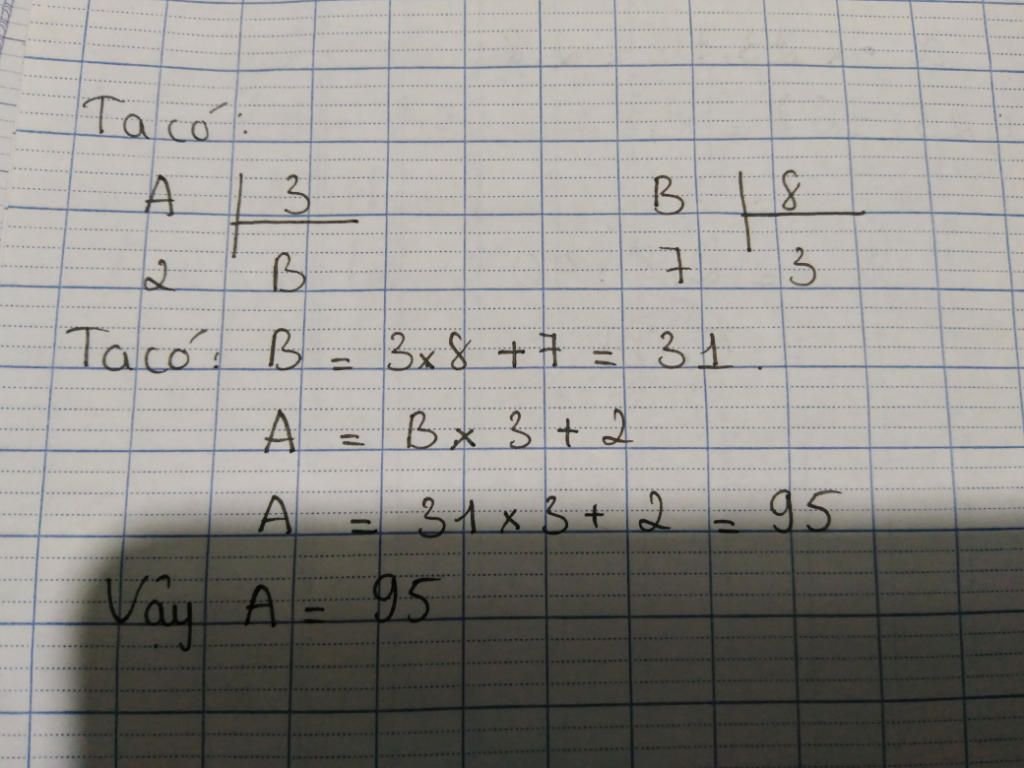 Ta có:
A 3 B 8
2 B 7 3
Ta có: B = 3x8 + 7 = 31.
A = B x 3 + 2
A = 31 x 3 + 2 = 95
Vậy A = 95